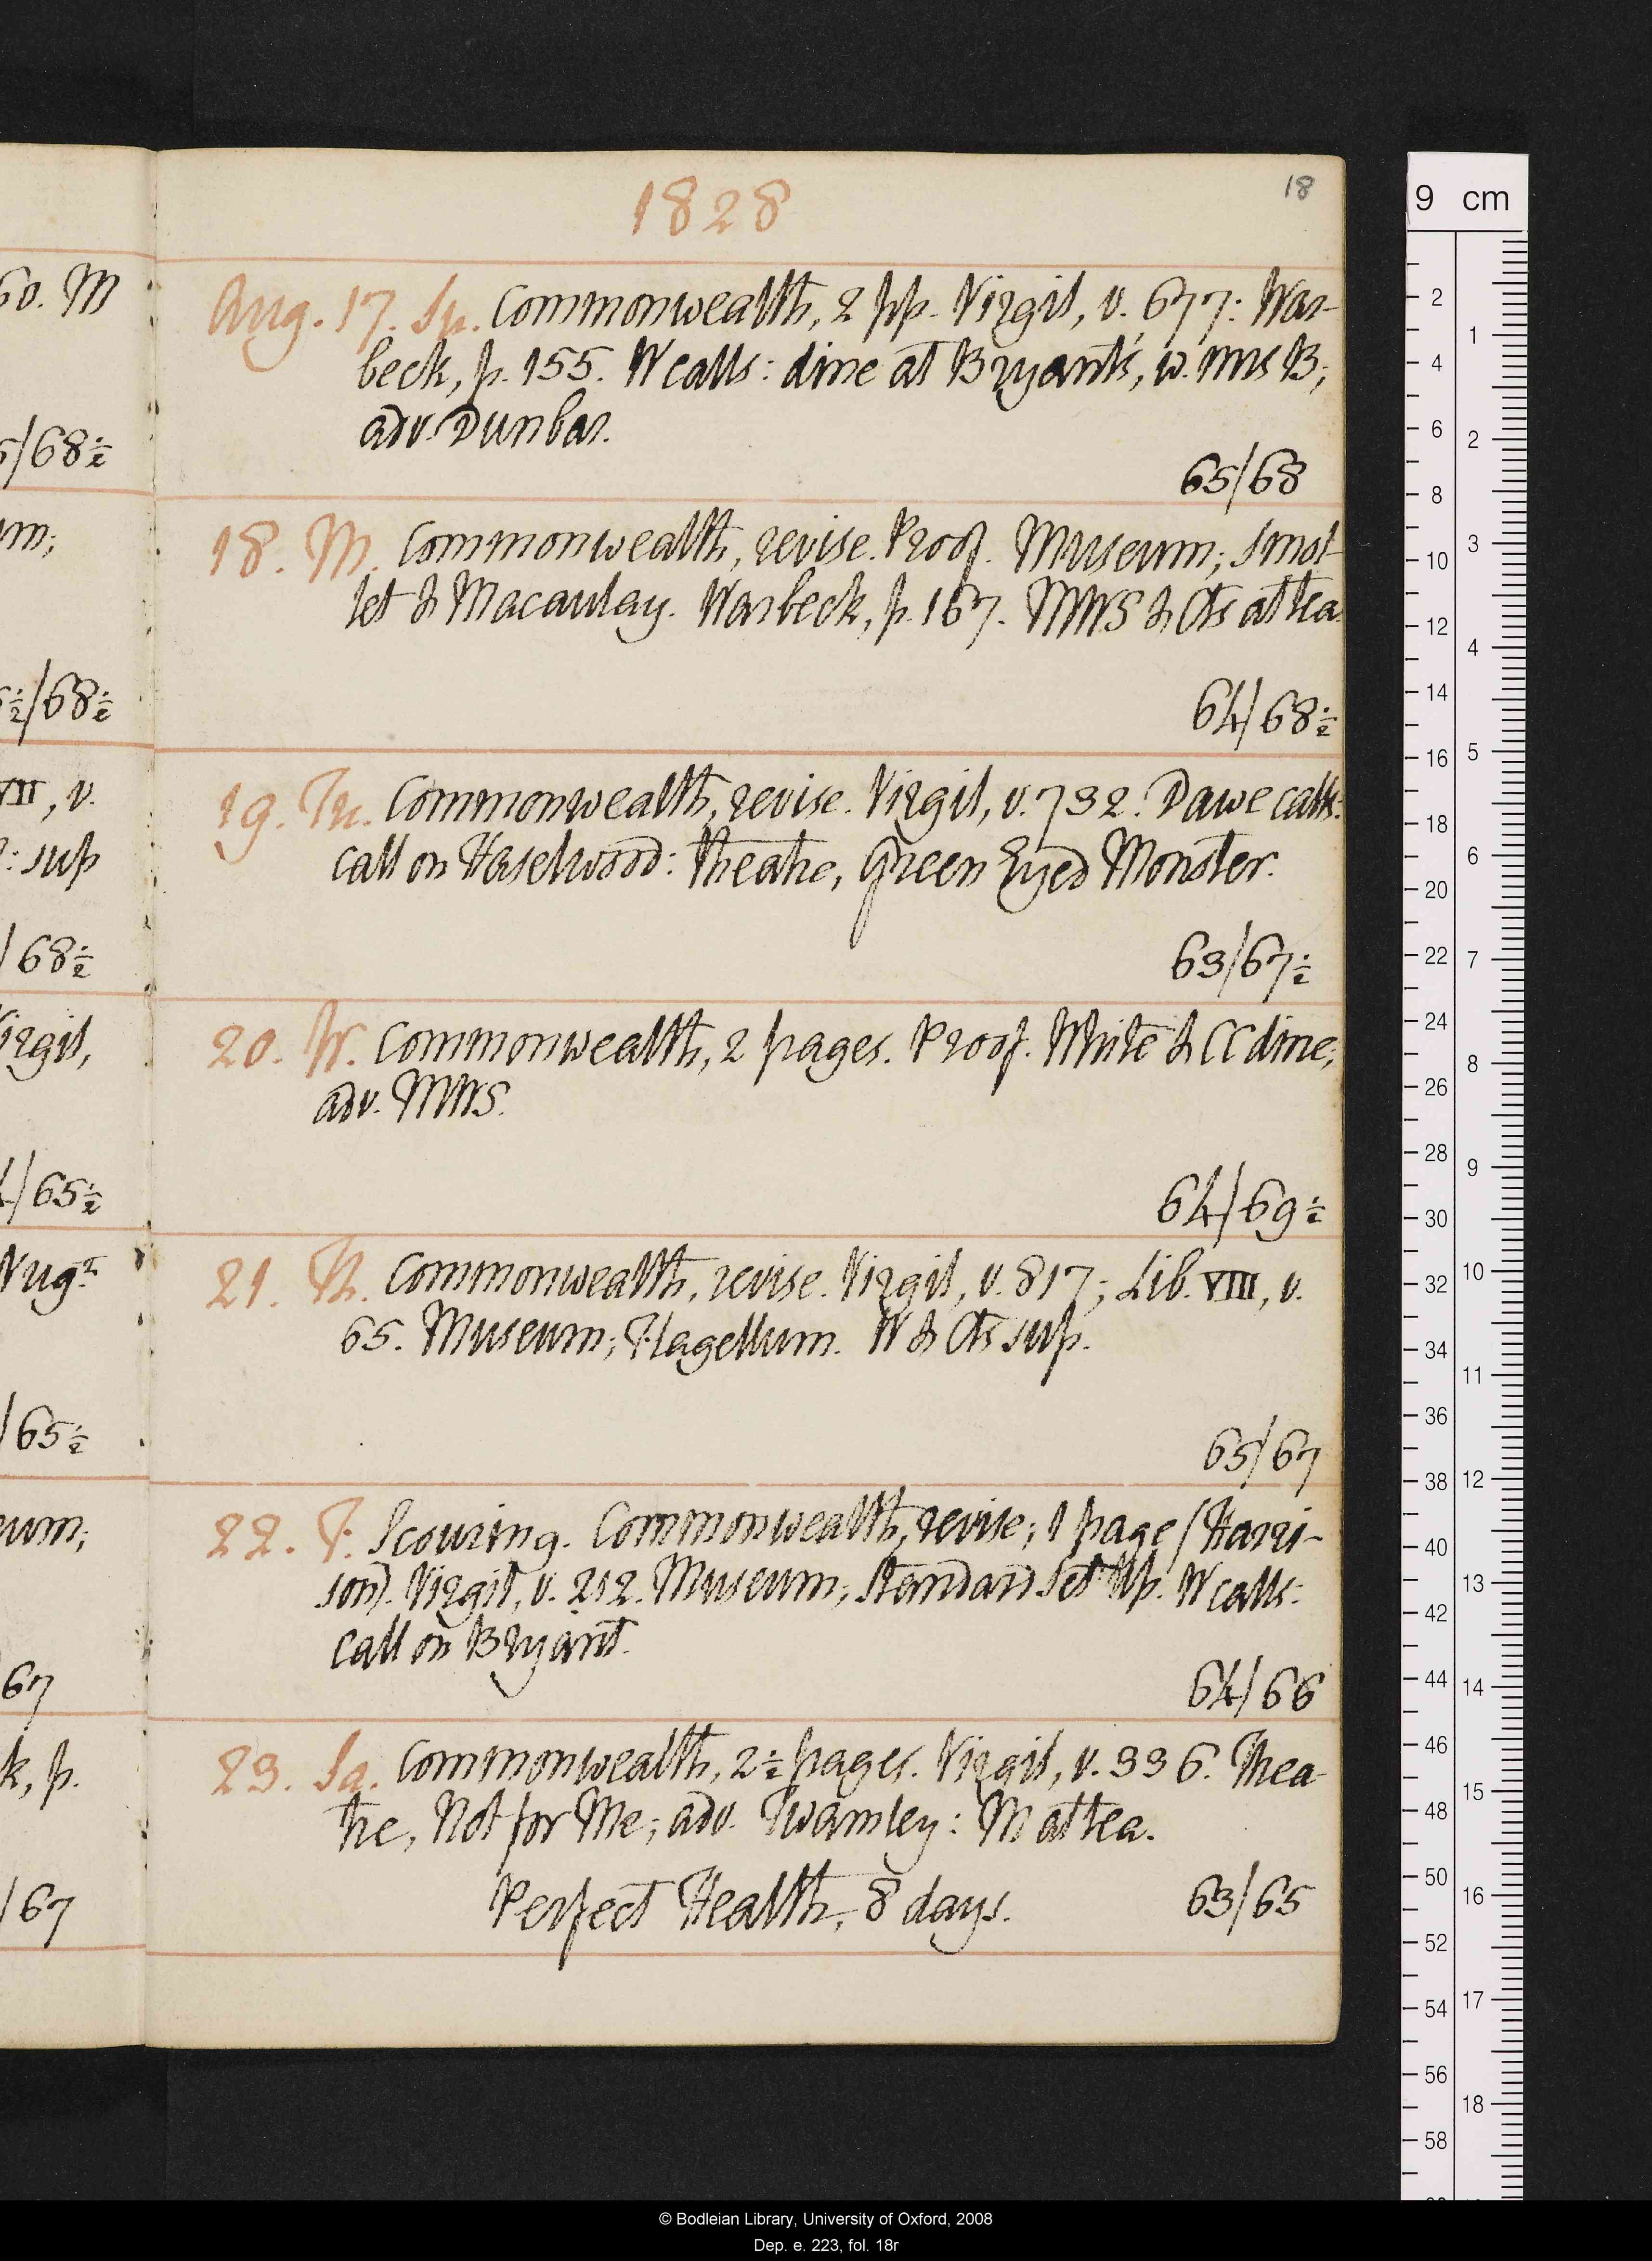 1828
18
Aug. 17. Su. Commonwealth, 2 pp. Virgil, v. 677: War-
beck, p. 155. W calls: dine at Bryant's, w. Mrs B;
adv. Dunbar.
65/68
18. M. Commonwealth, revise. Proof. Museum; Smol-
let & Macaulay. Warbeck, p. 167. MWS & Cts at tea.
64/68½
19. Tu. Commonwealth, revise. Virgil, v. 732. Dawe calls:
call on Haselwood: theatre, Green Eyed Monster.
63/67½
20. W. Commonwealth, 2 pages. Proof. White & CC dine;
adv. MWS.
64/69½
21. Th. Commonwealth, revise. Virgil, v. 817; Lib. VIII, v.
65. Museum; Flagellum. W & Cts sup.
65/67
22. F. Scouring. Commonwealth, revise; 1 page (Harri-
son). Virgil, v. 212. Museum; Standard Set Up. W calls:
call on Bryant.
64/66
23. Sa. Commonwealth, 2½ pages. Virgil, v. 336. Thea-
tre, Not for Me; adv. Twamley: M at tea.
Perfect Health, 8 days.
63/65
60. M
/68½
um;
½/68½
VII, v.
: sup
/68½
Virgil,
/65½
Nugt
/65½
eum;
67
k, p.
/67
9 cm
2
4
6
8
10
12
14
16
18
20
22
24
26
28
30
32
34
36
38
40
42
44
46
48
50
52
54
56
58
1
2
3
4
5
6
7
8
9
10
11
12
13
14
15
16
17
18
© Bodleian Library, University of Oxford, 2008
Dep. e. 223, fol. 18r